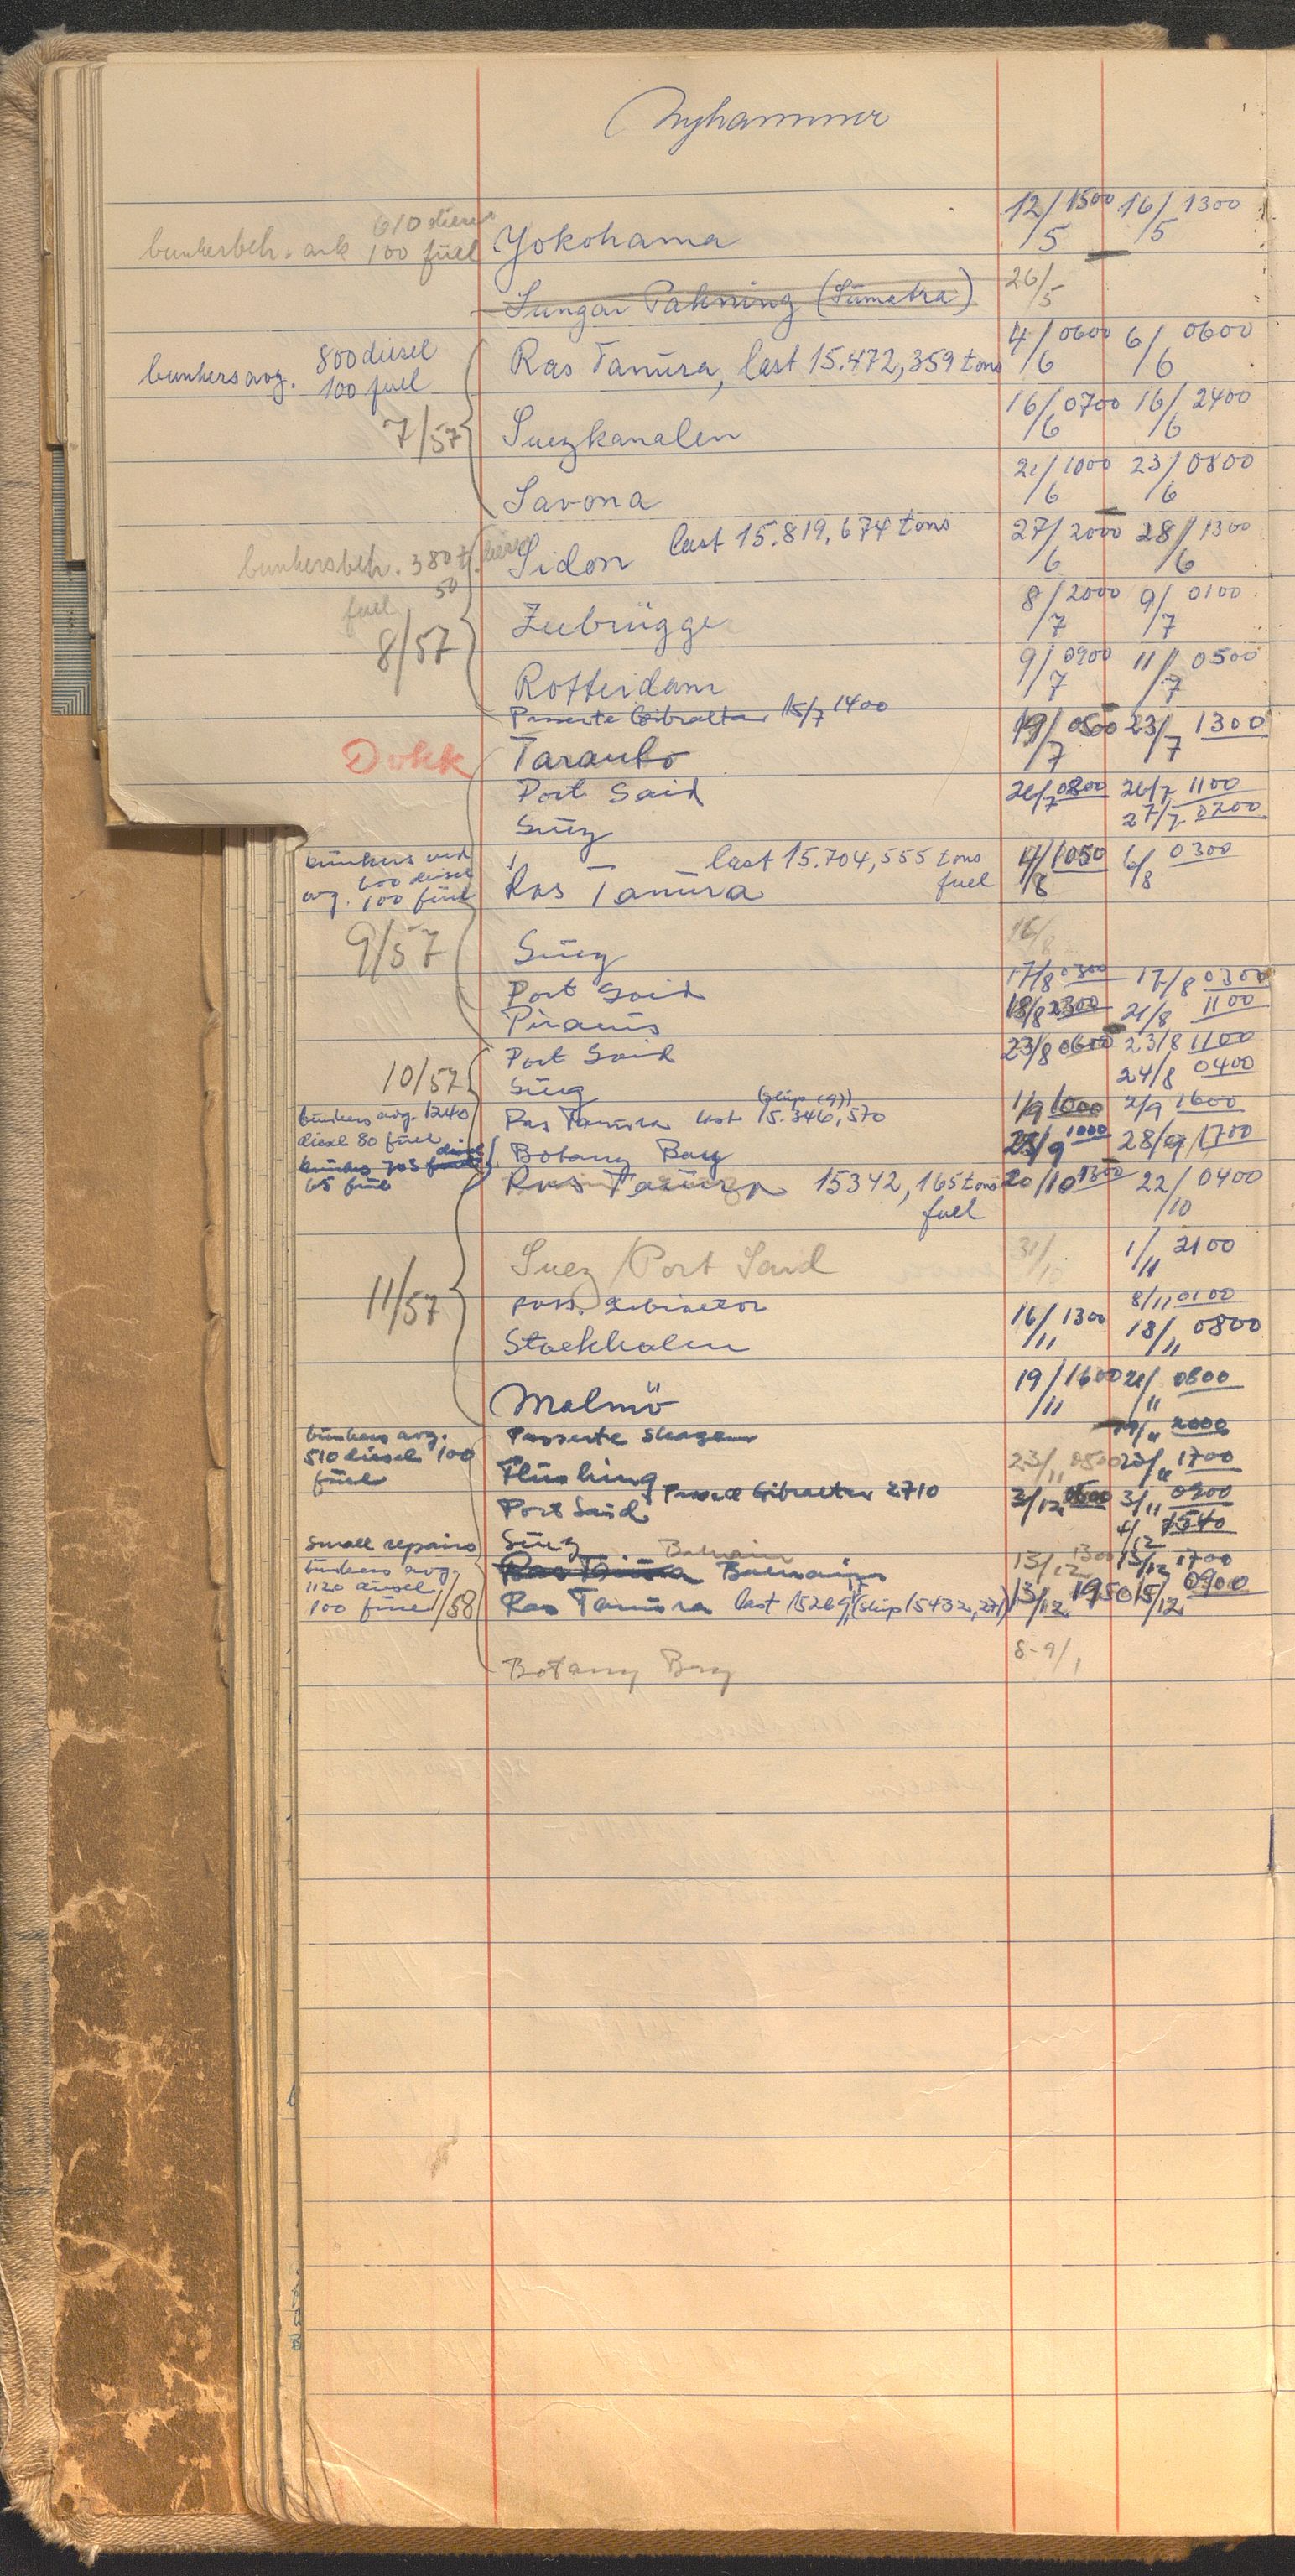 Nyhammer
610 diesel
bunkerbeh. ank 100 fuel Yokohama 12/5 1500 16/5 1300
Sungai Pakning (Sumatra) 26/5
800 diesel
bunkers avg. 100 fuel Ras Tanura, last 15.472,359 tons 4/6 0600 6/6 0600
7/57 Suezkanalen 16/6 0700 16/6 2400
Savona 21/6 1000 23/6 0800
bunkersbeh. 380 t. diesel Sidon last 15.819,674 tons 27/6 2000 28/6 1300
50
fuel Zeebrügge 8/7 2000 9/7 0100
8/57
Rotterdam 9/7 0900 11/7 0500
Passerte Gibraltar 15/7 1400
Dokk Taranto 19/7 0500 23/7 1300
Port Said 26/7 0800 26/7 1100
Suez 27/7 0200
bunkers ved last 15.704,555 tons
600 diesel
avg. 100 fuel Ras Tanura fuel 4/8 1050 6/8 0300
16/8
9/57 Suez
Port Said 17/8 0300 17/8 0300
Piraeus 18/8 2300 21/8 1100
Port Said 23/8 0600 23/8 1100
10/57 Suez 24/8 0400
bunkers avg. 1240 Ras Tanura last 15.346,570 1/9 1000 2/9 1600
diesel 80 fuel
Botany Bay 28/9 1000 28/9 1700
bunkers 705 diesel
65 fuel Ras Tanura 15342,165 tons 20/10 1300 22/10 0400
fuel
Suez/Port Said 31/10 1/11 2100
11/57 pass. Gibraltar 8/11 0100
Stockholm 16/11 1300 18/11 0800
Malmö 19/11 1600 21/11 0800
bunkers avg. Passerte Skagen 2000
510 diesel 100
fuel Flushing 23/11 0500 23/11 1700
Passed Gibraltar 2710
Port Said 3/12 0600 3/11 0900
small repairs Suez 4/12 1540
Bahrain
bunkers avg. Ras Tanura Bahrain 13/12 1300 13/12 1700
1120 diesel
100 fuel 1/58 Ras Tanura last 15269, (ship 15432,271) 13/12 1950 15/12 0900
Botany Bay 8-9/1